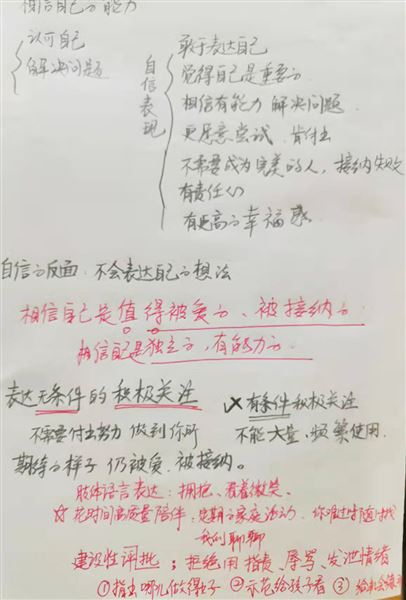 相信自己有能力
认可自己
解决问题
自信表现
敢于表达自己
觉得自己是重要的
相信有能力解决问题
更愿意尝试、肯付出
不需要成为完美的人，接纳失败
有责任心
有更高的幸福感
自信的反面：不会表达自己的想法
相信自己是值得被爱的、被接纳的
相信自己是独立的，有能力的
表达无条件的积极关注
✗有条件积极关注
不需要付出努力 做到你所
不能大量、频繁使用
期待的样子 仍被爱、被接纳。
肢体语言表达：拥抱、看着微笑。
☆花时间高质量陪伴：定期的家庭活动，你难过时随时找
我们聊聊
建设性评批；拒绝用指责、辱骂、发泄情绪
①指出哪儿做得好 ②示范给孩子看 ③给机会